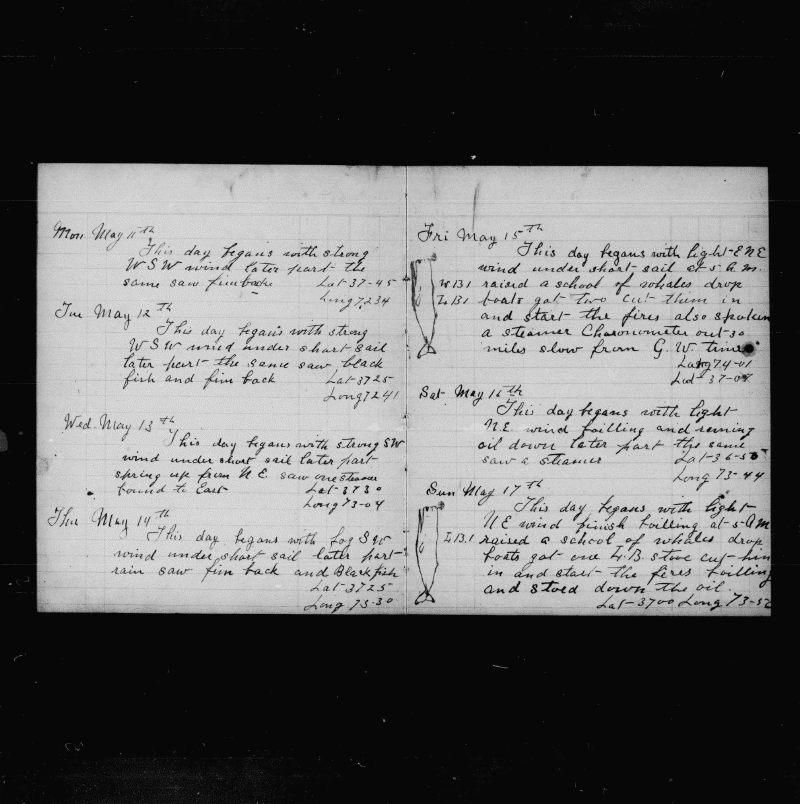 Mon May 11th
This day begans with strong
WSW wind later part the
same saw finback Lat 37-45
Long 7234
Tue May 12th
This day begans with strong
WSW wind under short sail
later part the same saw black
fish and fin back Lat 3725
Long 7241
Wed May 13th
This day begans with strong SW
wind under short sail later part
spring up from N E. saw one steamer
bound to East Lat 3730
Long 73-04
Thu May 14th
This day begans with fog
wind under short sail later part
rain saw fin back and Blackfish
Lat 3725
Long 73-30
Fri May 15th
This day begans with light ENE
wind under short sail at 5 A.M.
raised a school of whales drop
boats got two cut them in
and start the fires also spoken
a steamer Choronometer out 30
miles slow from G. W. time
Long 74-01
Lat 37-07
Sat May 16th
This day begans with light
NE wind boilling and
oil down later part the same
saw a steamer Lat 36-50
Long 73-44
Sun May 17th
This day begans with light
NE wind finish boilling at 5 AM
L B.1 raised a school of whales drop
boats got one L.B. stove cut him
in and start the fires boilling
and stoed down the oil.
Lat 3700 Long 73-52